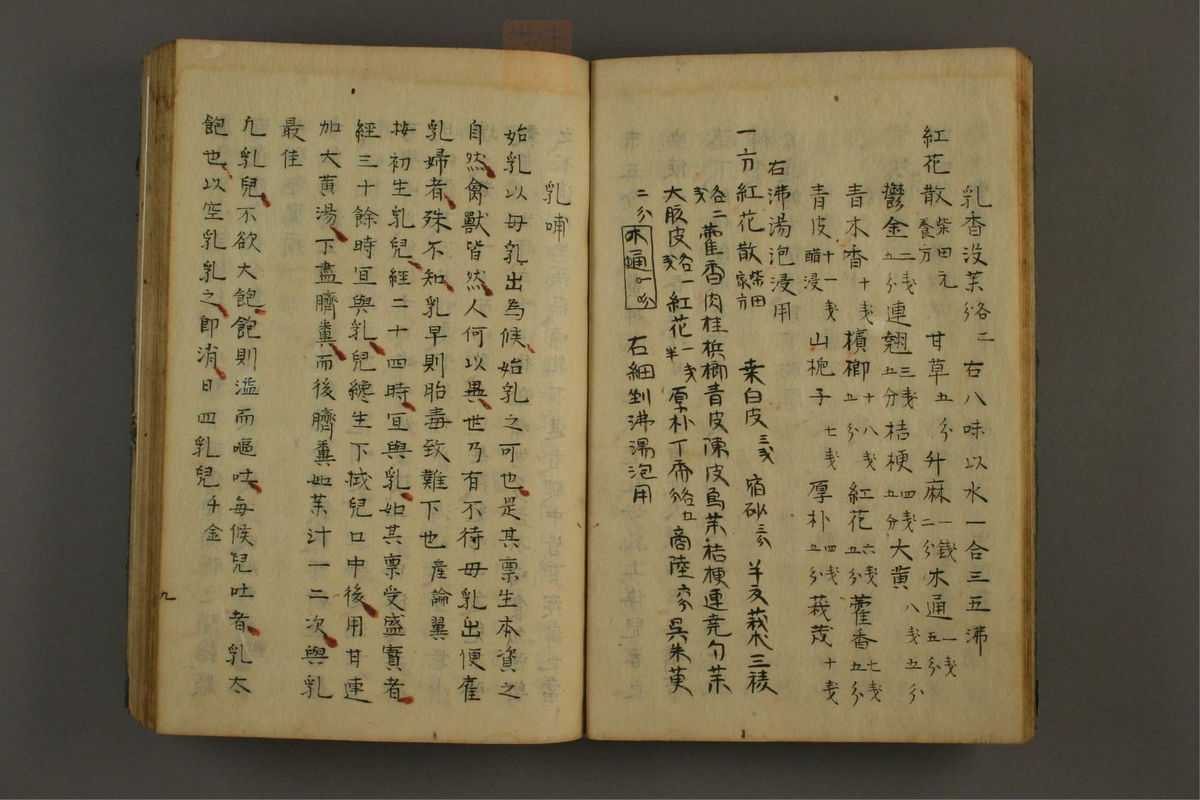 乳香没薬各二分 右八味以水一合三五沸
紅花散柴田元養方 甘草五分升麻一戔二分木通一戔五分
鬱金二戔五分連翹三戔五分桔梗四戔五分大黄八戔五分
青木香十戔檳榔十八戔五分紅花六戔五分藿香七戔五分
青皮十一戔醋浸山梔子七戔厚朴四戔五分莪茂十戔
右沸湯泡浸用
一方紅花散柴田家方 桒白皮三戔宿砂三分 莪朮三稜
各二戔藿香肉桂梹榔青皮陳皮烏薬桔梗連尭勺薬
大腹皮各一戔紅花一戔半厚朴丁香各五分商陸 呉朱萸
二分木通一分 右細剉沸湯泡用
乳哺
始乳以母乳出為候始乳之可也是其禀生本資之
自然禽獣皆然人何以異世乃有不待母乳出便雇
乳婦者殊不知乳早則胎毒致難下也産論翼
按初生乳兒經二十四時宜與乳如其禀受盛實者
經三十餘時宜與乳兒纔生下拭兒口中後用甘連
加大黄湯下盡臍糞而後臍糞如薬汁一二次與乳
最佳
凢乳兒不欲大飽飽則溢而嘔吐每候兒吐者乳太
飽也以空乳乳之即消日四乳兒千金
九